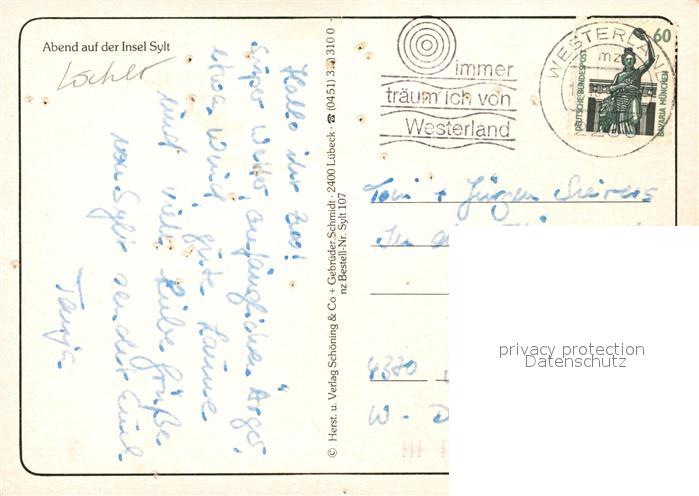 Abend auf der Insel Sylt
Löschler
Hallo ihr
super Wetter, anfänglicher Ärger,
etwas Wind, gute Laune
und viele liebe Grüße
von Sylt sendet Euch
Tanja
© Herst. u. Verlag Schöning & Co + Gebrüder Schmidt · 2400 Lübeck · ☎ (0451) 310 0
nz Bestell-Nr. Sylt 107
immer
träum ich von
Westerland
WESTERLAN
mz
60
DEUTSCHE BUNDESPOST
BAVARIA MÜNCHEN
Toni + Jürgen Sievers
In
4370
W - D
privacy protection
Datenschutz